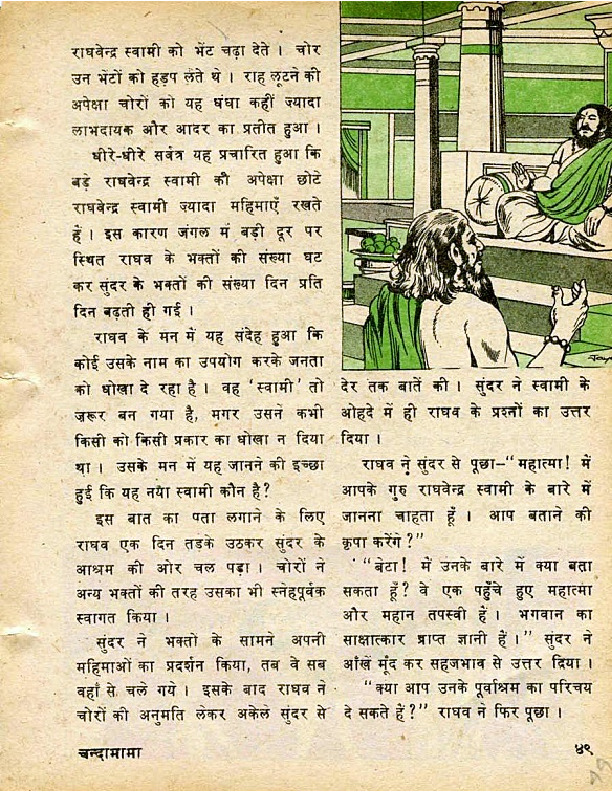 राघवेन्द्र स्वामी को भेंट चढ़ा देते । चोर
उन भेंटों को हड़प लेते थे । राह लूटने की
अपेक्षा चोरों को यह धंधा कहीं ज्यादा
लाभदायक और आदर का प्रतीत हुआ ।
धीरे-धीरे सर्वत्र यह प्रचारित हुआ कि
बड़े राघवेन्द्र स्वामी की अपेक्षा छोटे
राघवेन्द्र स्वामी ज़्यादा महिमाएँ रखते
हैं । इस कारण जंगल में बड़ी दूर पर
स्थित राघव के भक्तों की संख्या घट
कर सुंदर के भक्तों की संख्या दिन प्रति
दिन बढ़ती ही गई ।
राघव के मन में यह संदेह हुआ कि
कोई उसके नाम का उपयोग करके जनता
को धोखा दे रहा है । वह 'स्वामी' तो
ज़रूर बन गया है, मगर उसने कभी
किसी को किसी प्रकार का धोखा न दिया
था । उसके मन में यह जानने की इच्छा
हुई कि यह नया स्वामी कौन है ?
इस बात का पता लगाने के लिए
राघव एक दिन तड़के उठकर सुंदर के
आश्रम की ओर चल पड़ा । चोरों ने
अन्य भक्तों की तरह उसका भी स्नेहपूर्वक
स्वागत किया ।
सुंदर ने भक्तों के सामने अपनी
महिमाओं का प्रदर्शन किया, तब वे सब
वहाँ से चले गये । इसके बाद राघव ने
चोरों की अनुमति लेकर अकेले सुंदर से
देर तक बातें की । सुंदर ने स्वामी के
ओहदे में ही राघव के प्रश्नों का उत्तर
दिया ।
राघव ने सुंदर से पूछा-"महात्मा ! में
आपके गुरु राघवेन्द्र स्वामी के बारे में
जानना चाहता हूँ । आप बताने की
कृपा करेंगे ?"
"बेटा ! में उनके बारे में क्या बता
सकता हूँ ? वे एक पहुँचे हुए महात्मा
और महान तपस्वी हैं । भगवान का
साक्षात्कार प्राप्त ज्ञानी हैं ।" सुंदर ने
आँखें मूंद कर सहजभाव से उत्तर दिया ।
"क्या आप उनके पूर्वाश्रम का परिचय
दे सकते हैं ?" राघव ने फिर पूछा ।
चन्दामामा
४९